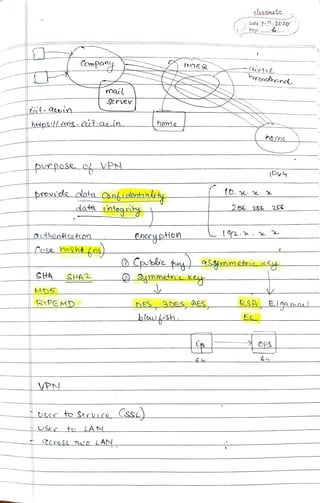 classmate
Date 7.9.2020
Page 6
Company
INTER
Airtel
broadband
mail
server
iiit.ac.in
home
https://lms.iiit.ac.in
home
purpose of VPN
IPv4
provide data Confidentiality
10. x. x. x
data integrity
256 256 256
authentication encryption
192. x. x. x
(use hash fns)
① (public key) assymmetric key
SHA SHA2 ② Symmetric key
MD5
RIPEMD DES, 3DES, AES, RSA, Elgamal
blowfish. EC
ip ops
64 64
VPN
- User to Service (SSL)
- User to LAN
- Across two LAN